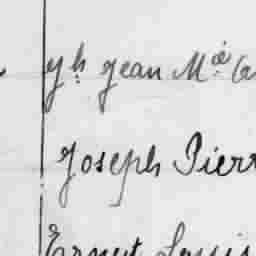 Jh Jean Mie
Joseph Pierr
Ernest Louis